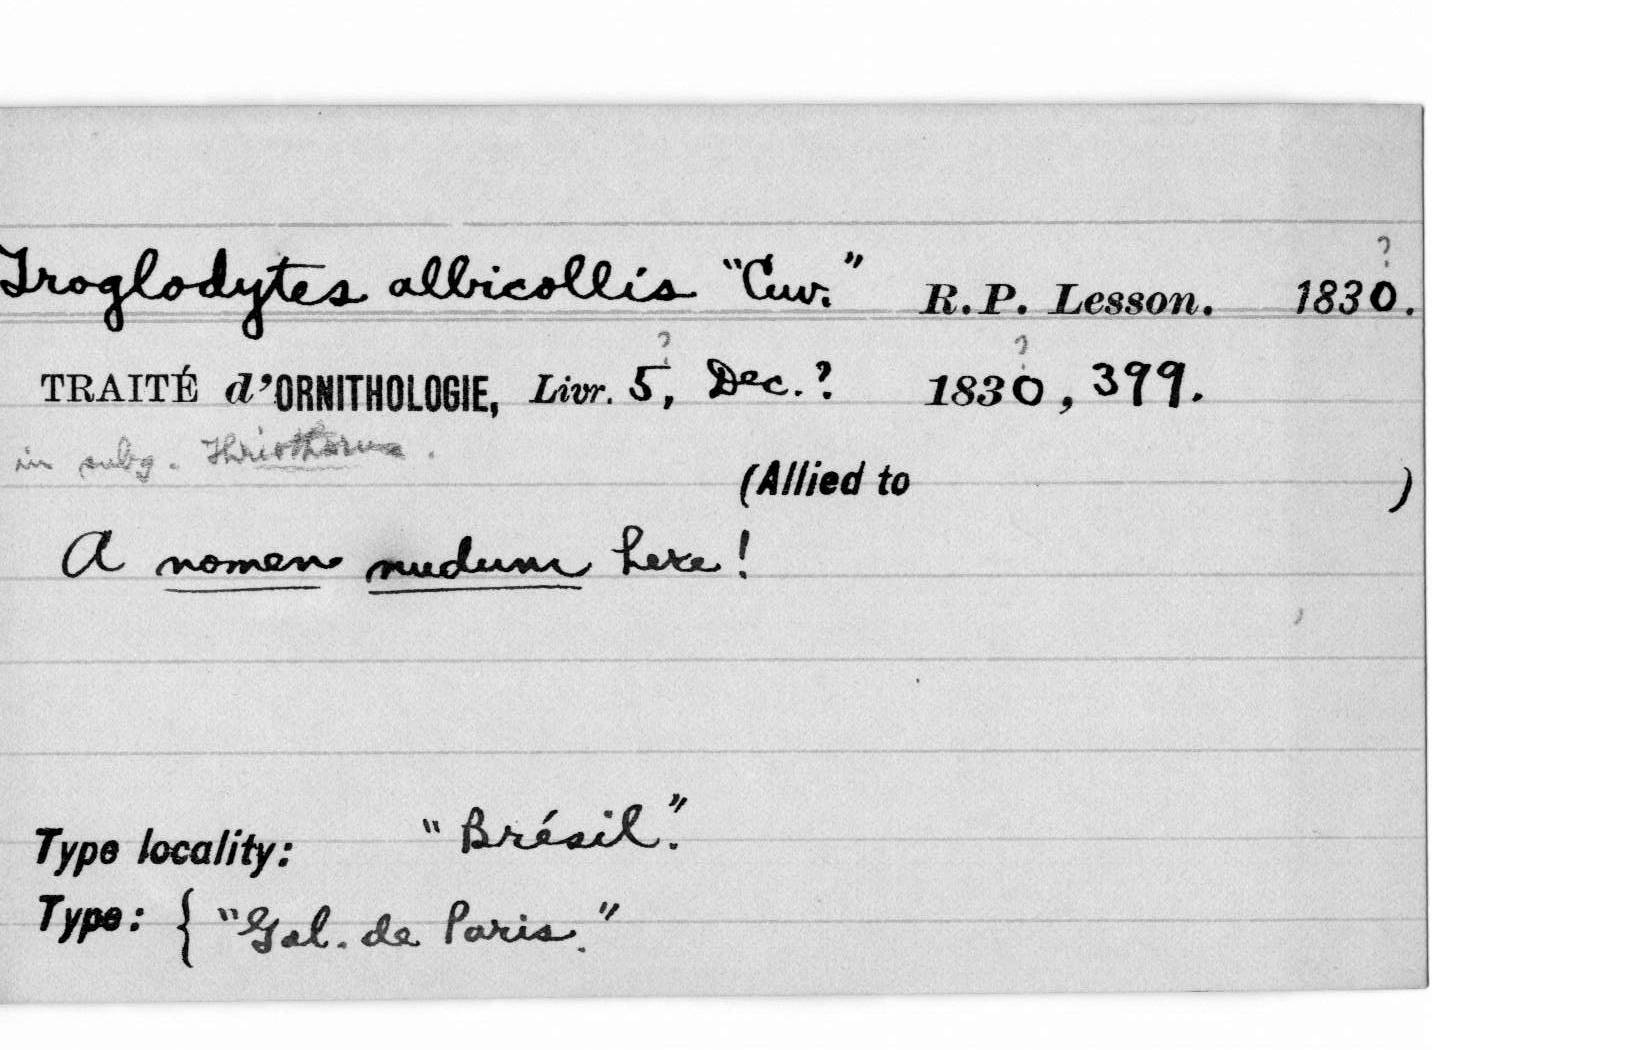 ?
Troglodytes albicollis "Cuv." R.P. Lesson. 1830.
? ?
TRAITÉ d'ORNITHOLOGIE, Livr. 5, Dec.? 1830, 399.
in subg. Thriothorus.
(Allied to )
A nomen nudum here!
Type locality: "Brésil".
Type: { "Gal. de Paris."